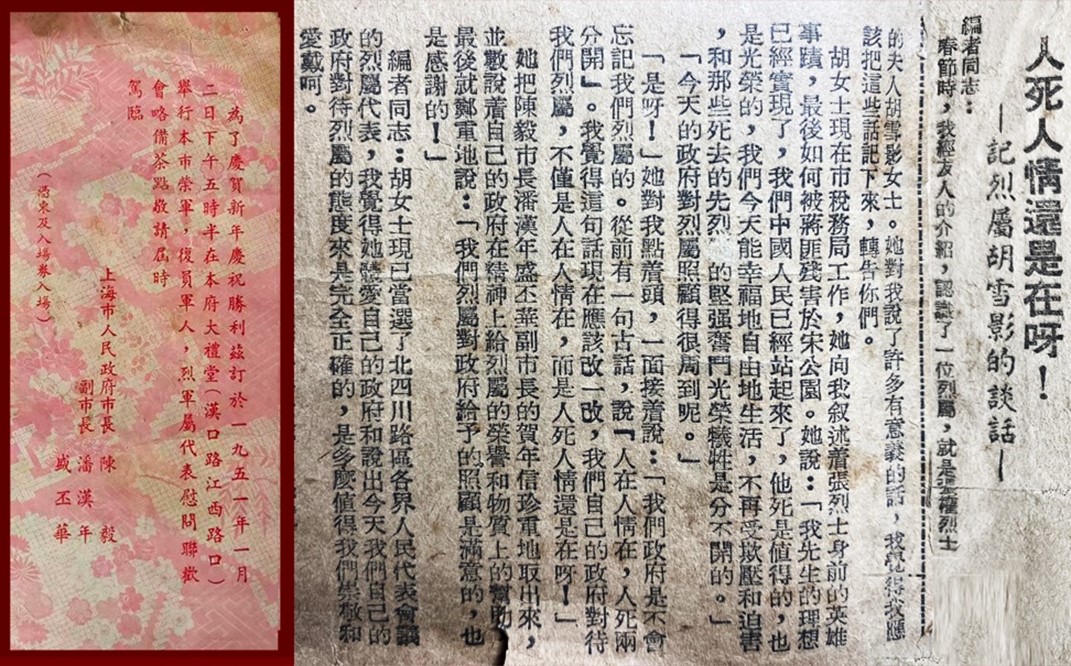 為了慶賀新年慶祝勝利茲訂於一九五一年一月
二日下午五時半在本府大禮堂（漢口路江西路口）
舉行本市榮軍，復員軍人，烈軍屬代表慰問聯歡
會略備茶點敬請屆時
駕臨
上海市人民政府市長 陳毅
副市長 潘漢年
盛丕華
（憑柬及入場券入場）
人死人情還是在呀！
—記烈屬胡雪影的談話—
編者同志：
春節時，我經友人的介紹，認識了一位烈屬，就是張權烈士
的夫人胡雪影女士。她對我說了許多有意義的話，我覺得我應
該把這些話記下來，轉告你們。
胡女士現在市稅務局工作，她向我叙述着張烈士身前的英雄
事蹟，最後如何被蔣匪殘害於宋公園。她說：「我先生的理想
已經實現了，我們中國人民已經站起來了，他死是值得的，也
是光榮的，我們今天能幸福地自由地生活，不再受欺壓和迫害
，和那些死去的先烈 的堅强奮鬥光榮犧牲是分不開的。」
「今天的政府對烈屬照顧得很周到呢。」
「是呀！」她對我點着頭，一面接着說：「我們政府是不會
忘記我們烈屬的。從前有一句古話，說『人在人情在，人死兩
分開』。我覺得這句話現在應該改一改，我們自己的政府對待
我們烈屬，不僅是人在人情在，而是人死人情還是在呀！」
她把陳毅市長潘漢年盛丕華副市長的賀年信珍重地取出來，
並數說着自己的政府在精神上給烈屬的榮譽和物質上的幫助，
最後就鄭重地說：「我們烈屬對政府給予的照顧是滿意的，也
是感謝的！」
編者同志：胡女士現已當選了北四川路區各界人民代表會議
的烈屬代表，我覺得她熱愛自己的政府和說出今天我們自己的
政府對待烈屬的態度來是完全正確的，是多麼值得我們崇敬和
愛戴呵。